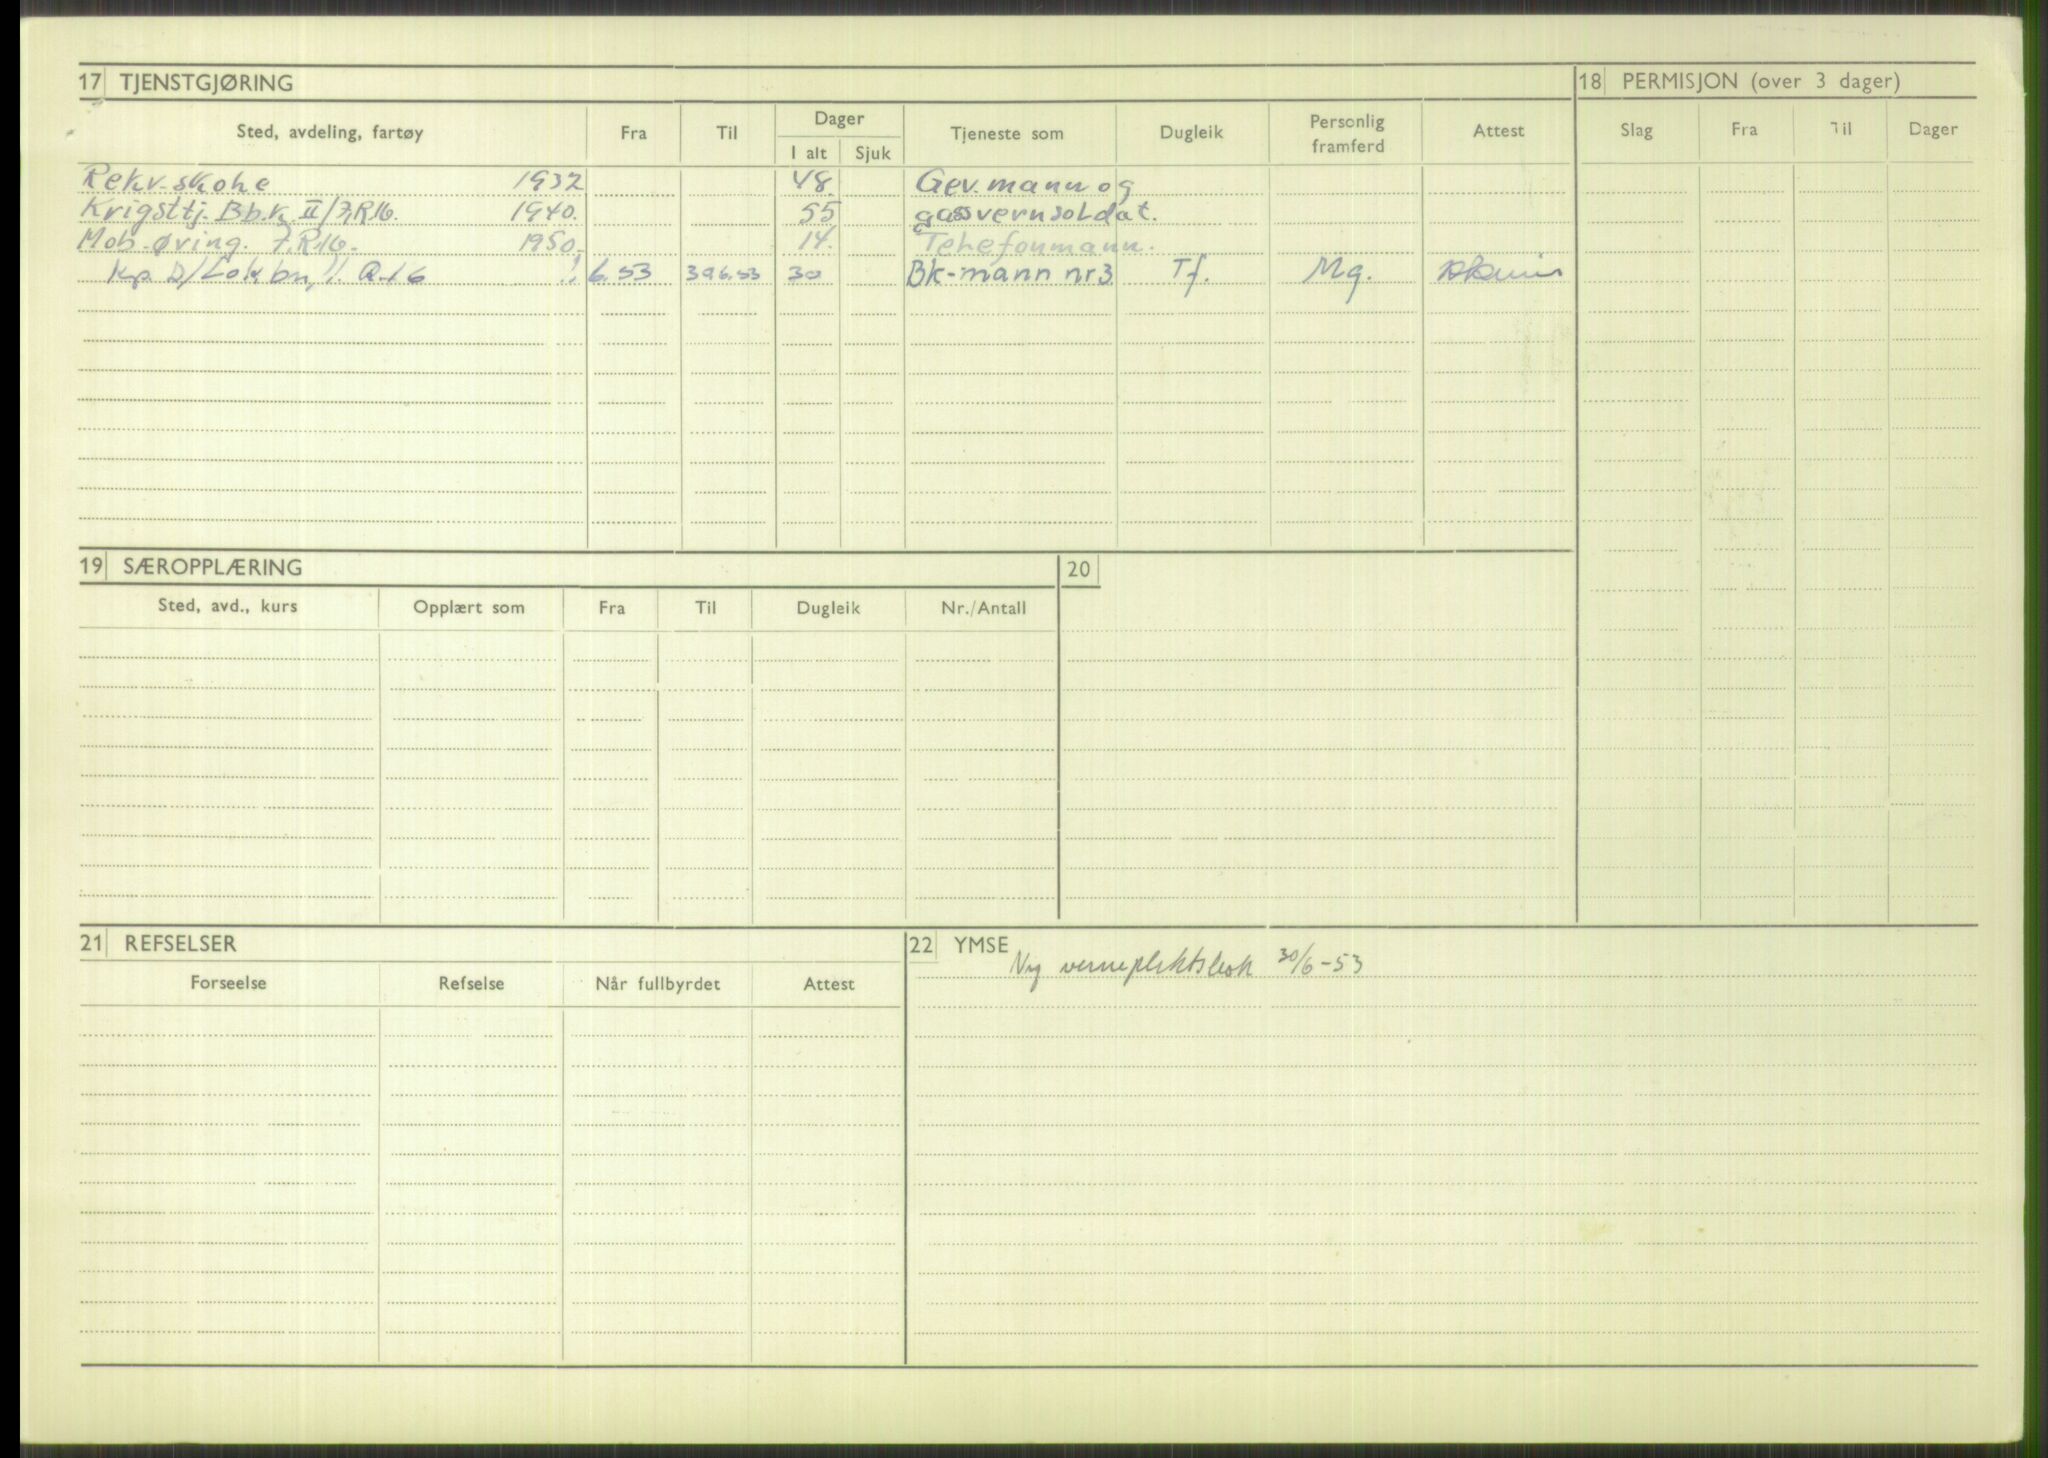 17 TJENSTGJØRING
Sted, avdeling, fartøy Fra Til Dager I alt Sjuk Tjeneste som Dugleik Personlig framferd Attest
Rekr.skole 1932 48. Gev.mann og
Krigsttj. Bb.k. II/I.R.16. 1940. 55 gassvernsoldat.
Mob-øving. I.R.16. 1950. 14. Telefonmann.
Kp D/Lok bn, 1. 6.53 30 6.53 30 Bk-mann nr 3. Tf. Mg.
18 PERMISJON (over 3 dager)
Slag Fra Til Dager
19 SÆROPPLÆRING
Sted, avd., kurs Opplært som Fra Til Dugleik Nr./Antall
20
21 REFSELSER
Forseelse Refselse Når fullbyrdet Attest
22 YMSE Ny vernepliktsbok 30/6-53